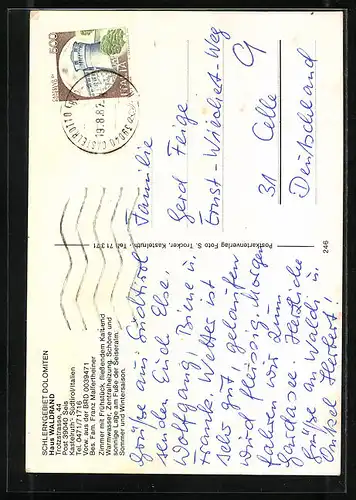 SCHLERNGEBIET DOLOMITEN
Haus WALDRAND
Trotzstrasse, 44
Post 39040 Seis
Kastelruth - Südtirol/Italien
Tel. 0471/71716
Vorw. aus der BRD 0039471
Bes. Fam. Franz Malfertheiner
Zimmer mit Frühstück, fließendem Kalt-und
Warmwasser, Zentralheizung. Schöne und
sonnige Lage am Fuße der Seiseralm.
Sommer und Wintersaison.
Grüße aus Südtirol
senden Euch Else,
Wolfgang, Biene u.
Frauke. Wetter ist
sehr gut, gelaufen
wird fleissig. Morgen
fahren wir zum
Gardasee. Herzliche
Grüße an Waldi u.
Onkel Herbert!
Postkartenverlag Foto S. Trocker, Kastelruth - Tel. 71371
246
500
ITALIA
39040 CASTELROTTO
19.8.82
Familie
Gerd Feige
Ernst-Wiechert-Weg
9
31 Celle
Deutschland